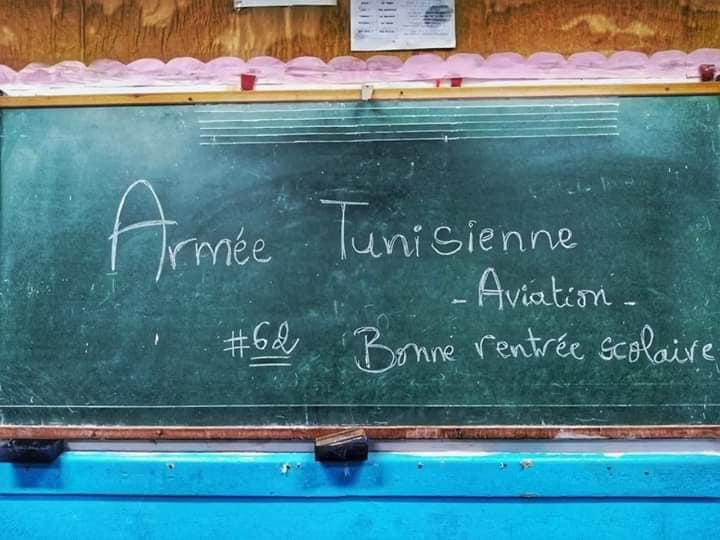 Armée Tunisienne
- Aviation -
#62 Bonne rentrée scolaire